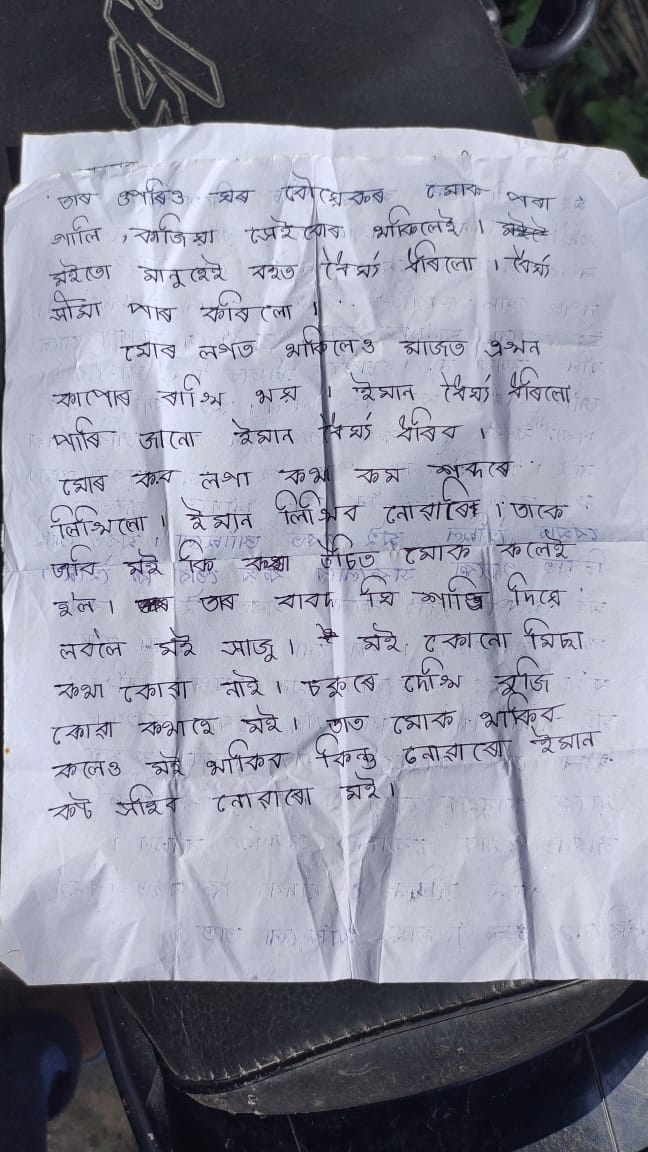 তাৰ ওপৰিও ঘৰ মোক পৰা
গালি, কাজিয়া সেইবোৰ থাকিলেই।
মইতো মানুহেই বহুত ধৈৰ্য্য ধৰিলো। ধৈৰ্য্য
সীমা পাৰ কৰিলো।
মোৰ লগত থাকিলেও মাজত এখন
কাপোৰ ৰাখি থয়। ইমান ধৈৰ্য্য ধৰিলো
পাৰি জানো ইমান ধৈৰ্য্য ধৰিব।
মোৰ কব লগা কথা কম শব্দৰে
লিখিলো। ইমান লিখিব নোৱাৰি। তাকে
ভাবি মই কি কৰা উচিত মোক কলেই
হল। তাৰ বাবদ যি শাস্তি দিয়ে
লবলৈ মই সাজু। মই কোনো মিছা
কথা কোৱা নাই। চকুৰে দেখি বুজি
কোৱা কথাহে মই। তাত মোক থাকিব
কলেও মই থাকিব কিন্তু নোৱাৰো ইমান
কষ্ট সহিব নোৱাৰো মই।